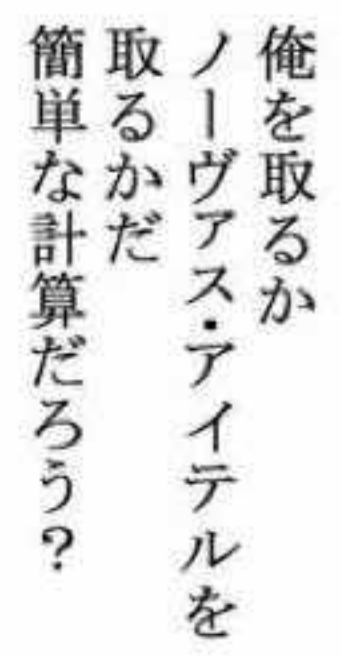 俺を取るか
ノーヴァス・アイテルを
取るかだ
簡単な計算だろう?